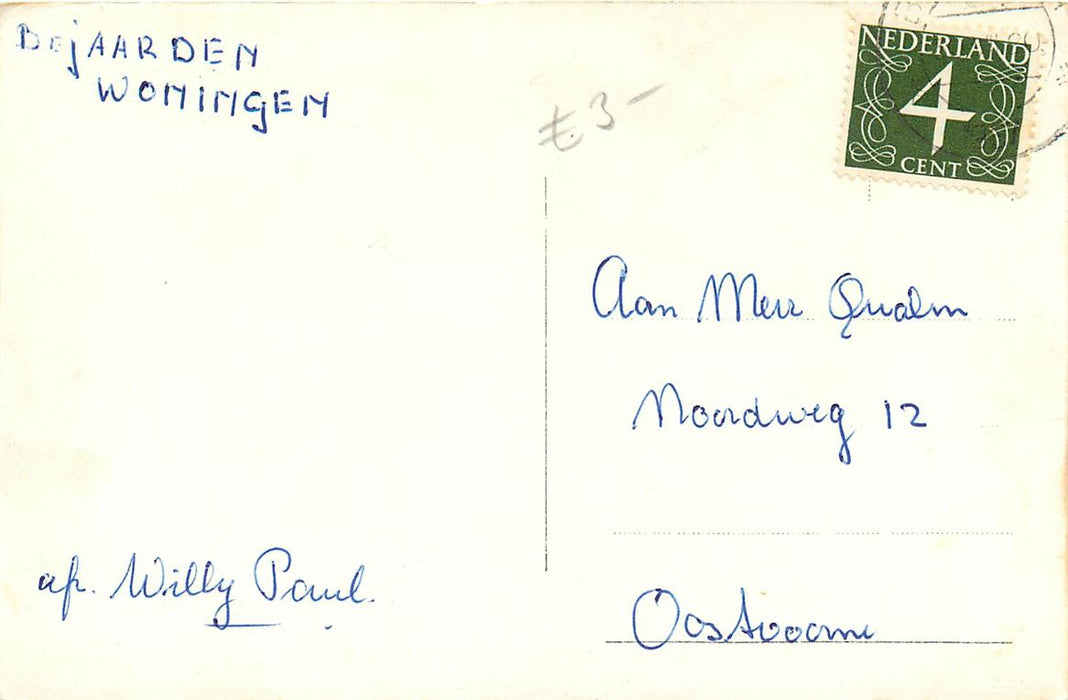 BejAARDEN
WONINGEN
£ 3 -
NEDERLAND
4
CENT
Aan Mevr Qualm
Noordweg 12
af. Willy Paul.
Oostvoorne